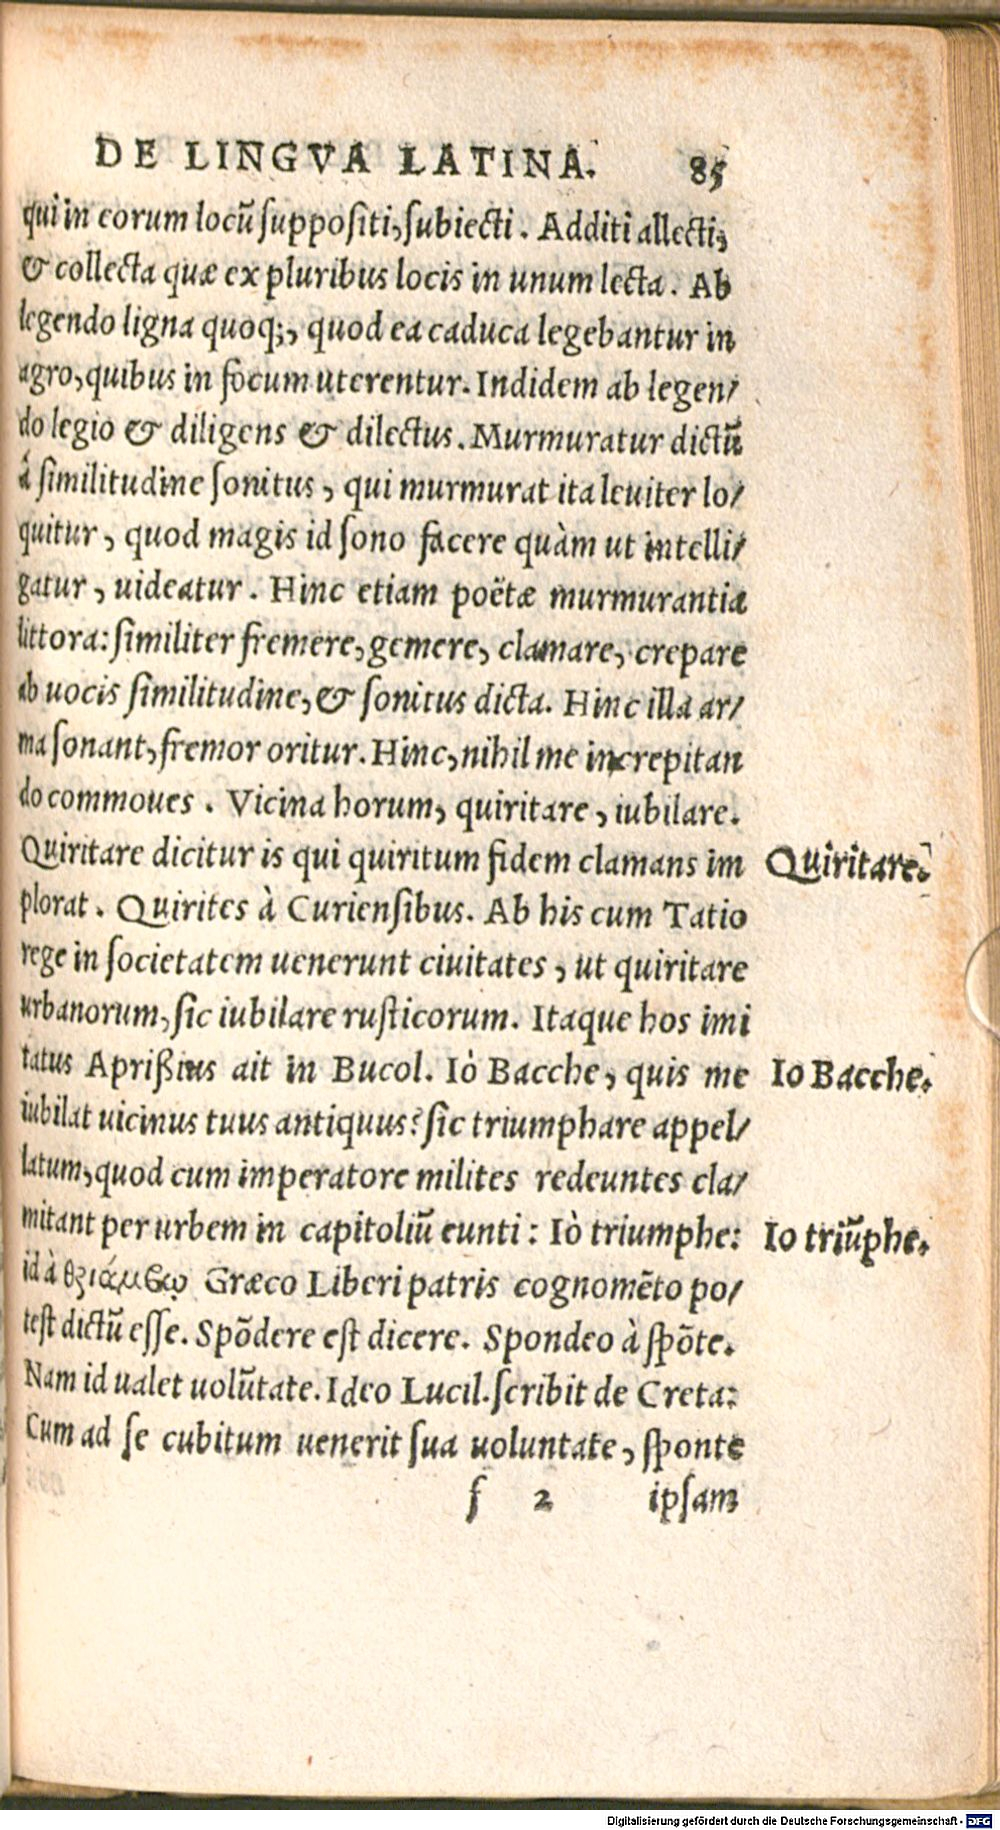 DE LINGVA LATINA. 85
qui in eorum locū suppositi, subiecti. Additi allecti,
& collecta quæ ex pluribus locis in unum lecta. Ab
legendo ligna quoq;, quod ea caduca legebantur in
agro, quibus in focum uterentur. Indidem ab legen/
do legio & diligens & dilectus. Murmuratur dictū
à similitudine sonitus, qui murmurat ita leuiter lo/
quitur, quod magis id sono facere quàm ut intelli/
gatur, uideatur. Hinc etiam poëtæ murmurantia
littora: similiter fremere, gemere, clamare, crepare
ab uocis similitudine, & sonitus dicta. Hinc illa ar/
ma sonant, fremor oritur. Hinc, nihil me increpitan
do commoues. Vicina horum, quiritare, iubilare.
Quiritare dicitur is qui quiritum fidem clamans im Quiritare.
plorat. Quirites à Curiensibus. Ab his cum Tatio
rege in societatem uenerunt ciuitates, ut quiritare
urbanorum, sic iubilare rusticorum. Itaque hos imi
tatus Aprißius ait in Bucol. Iò Bacche, quis me Io Bacche.
iubilat uicinus tuus antiquus? sic triumphare appel/
latum, quod cum imperatore milites redeuntes cla/
mitant per urbem in capitoliū eunti: Iò triumphe: Io triūphe.
id à θριάμϐῳ Græco Liberi patris cognomēto po/
test dictū esse. Spōdere est dicere. Spondeo à spōte.
Nam id ualet uolūtate. Ideo Lucil. scribit de Creta:
Cum ad se cubitum uenerit sua uoluntate, sponte
f 2 ipsam
Digitalisierung gefördert durch die Deutsche Forschungsgemeinschaft - DFG